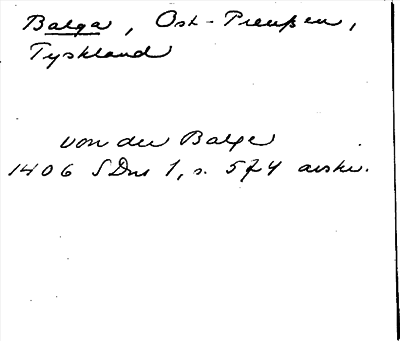 Balga, Ost-Preußen,
Tyskland
von der Balge
1406 SDns 1, s. 574 avskr.